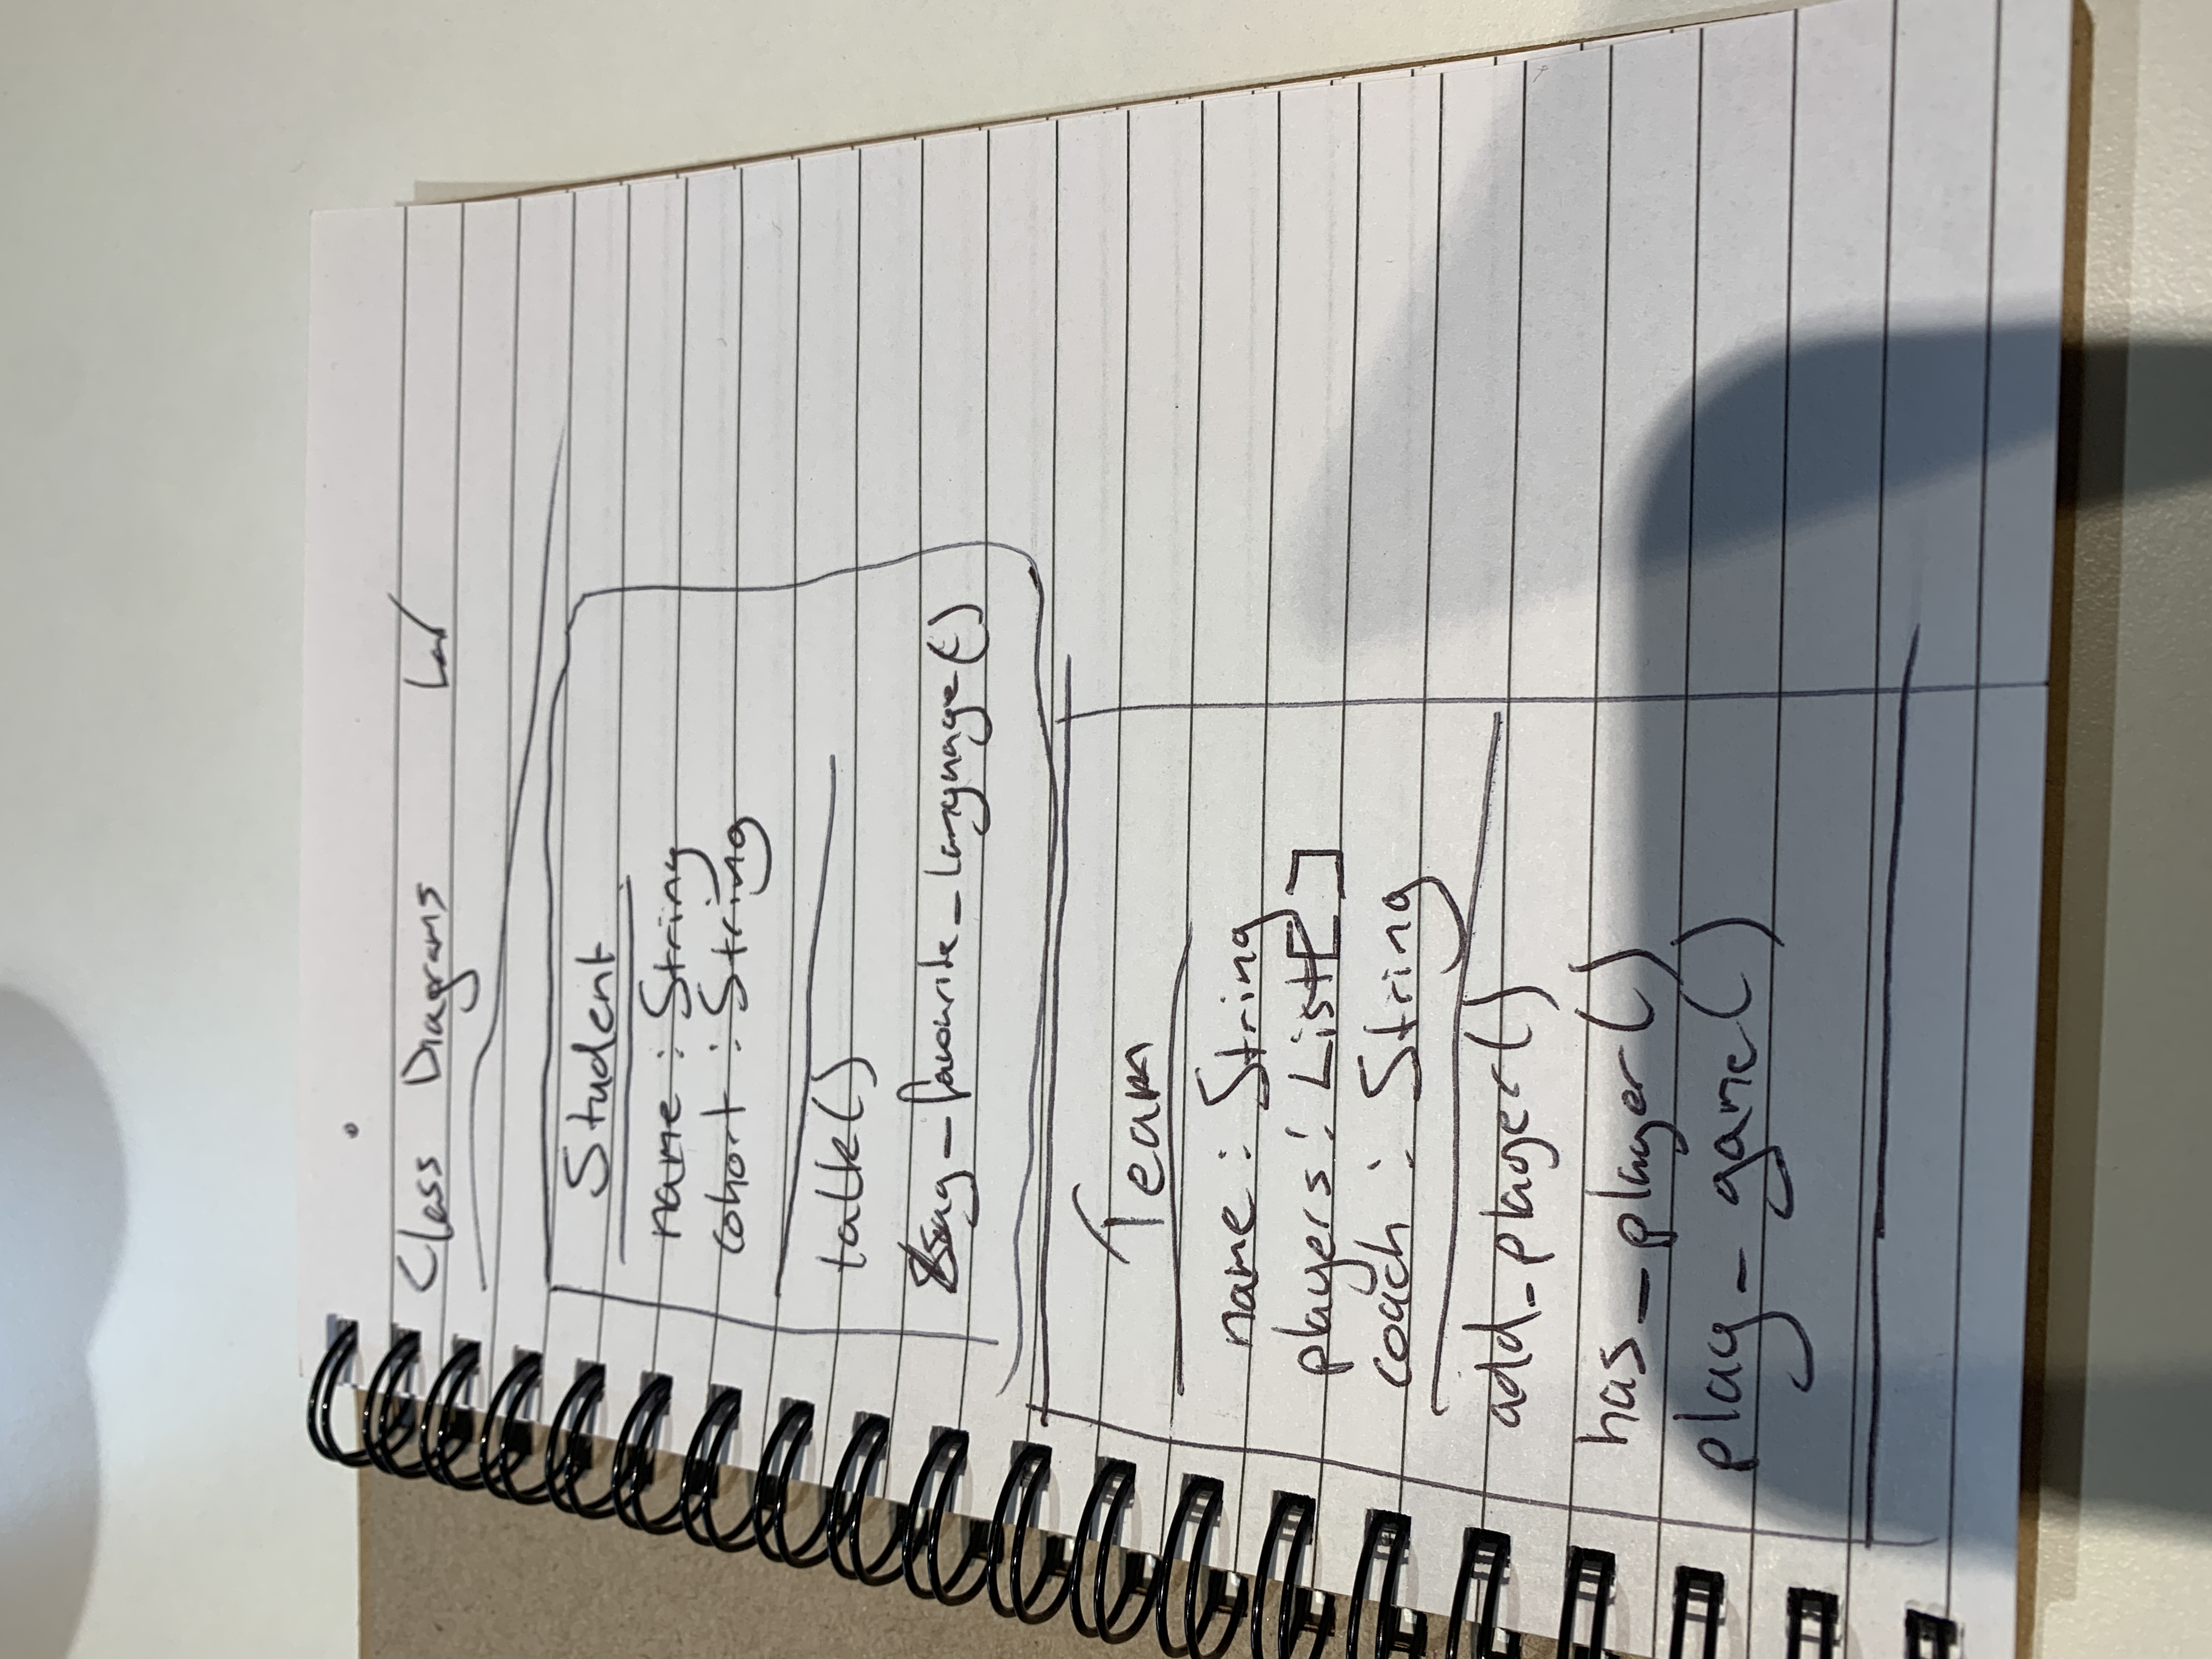 Class Diagrams Lab
Student
name : String
cohort : String
talk()
say_favourite_language()
Team
name : String
players : List[ ]
coach : String
add_player()
has_player()
play_game()